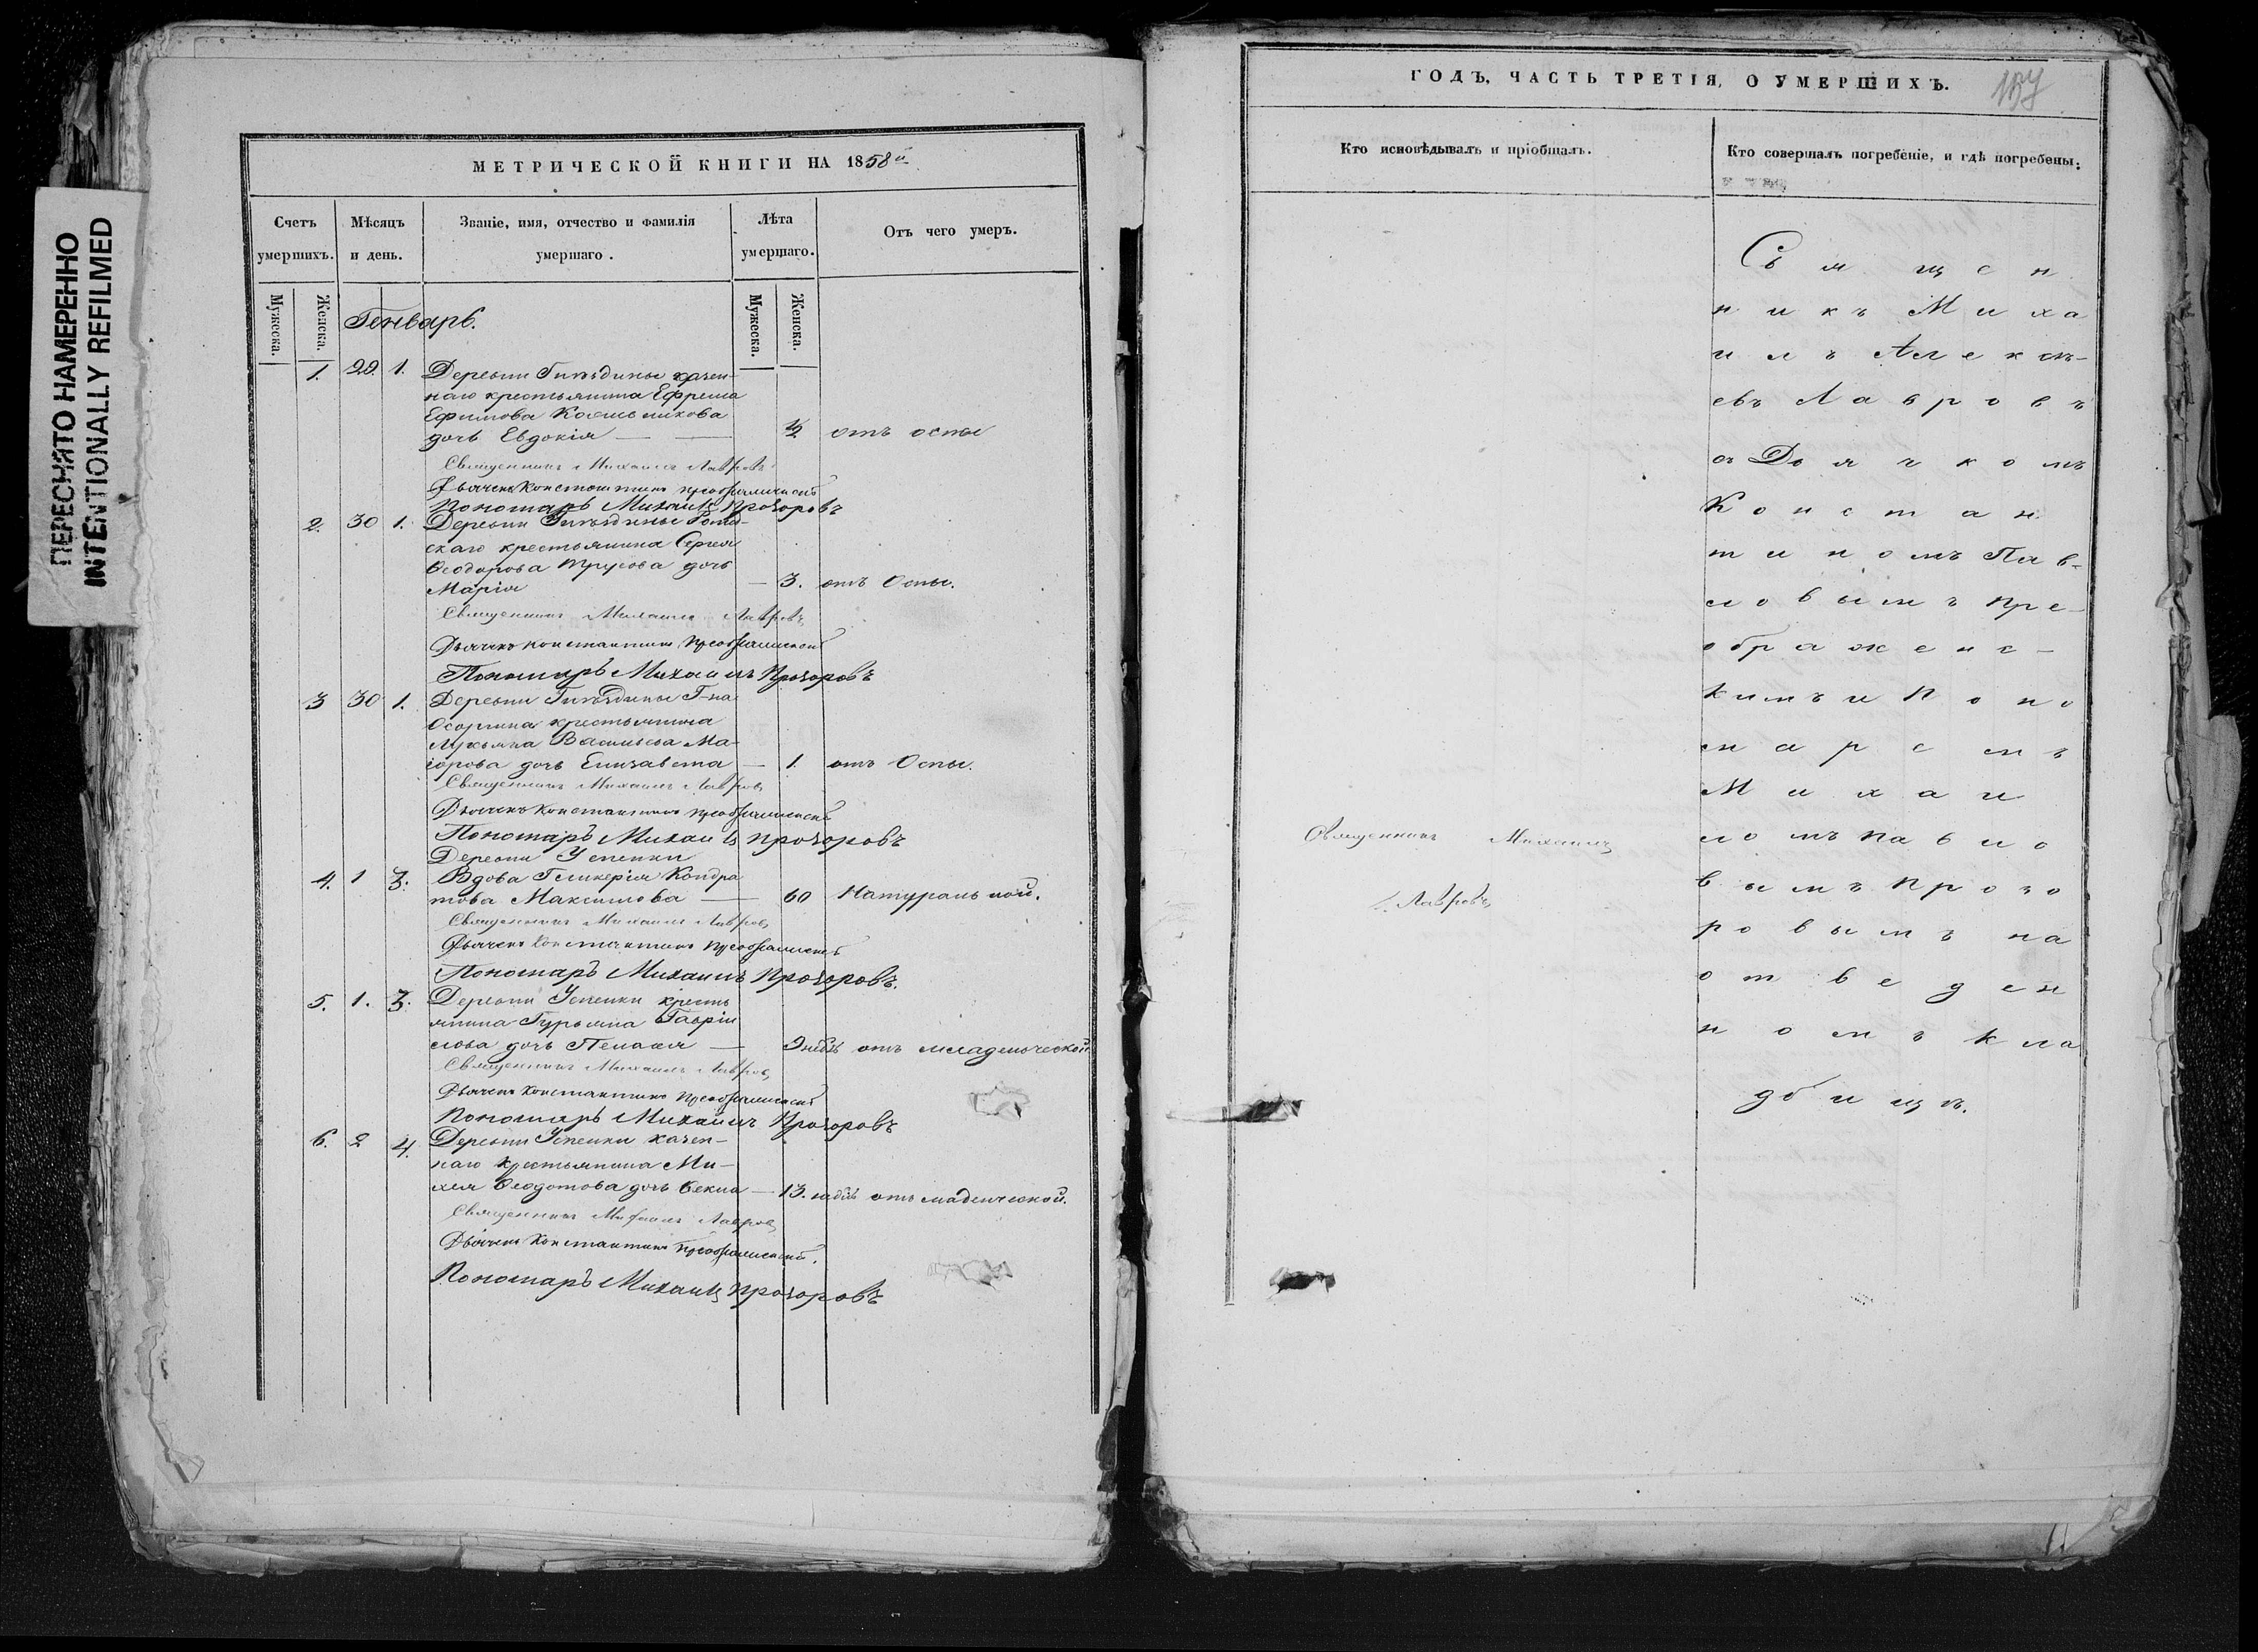 ПЕРЕСНЯТО НАМЕРЕННО
INTENTIONALLY REFILMED
МЕТРИЧЕСКОЙ КНИГИ НА 1858й
Счетъ умершихъ.
Мѣсяцъ и день.
Званіе, имя, отчество и фамилія умершаго.
Лѣта умершаго.
Отъ чего умеръ.
Мужеска.
Женска.
Мужеска.
Женска.
Генварь.
1. 29. 1. Деревни Гнѣздины казен-
наго крестьянина Ефрема
Ефимова
дочь Евдокія — — отъ оспы
Священникъ Михаилъ Лавровъ
Дьячекъ Константинъ Преображенскій
Пономарь Михаилъ Прозоровъ
2. 30 1. Деревни Гнѣздины
скаго крестьянина Сергея
Ѳеодорова Трусова дочь
Марія — 3. отъ Оспы.
Священникъ Михаилъ Лавровъ
Дьячекъ Константинъ Преображенскій
Пономарь Михаилъ Прозоровъ
3 30 1. Деревни Гнѣздины Г-на
Осоргина крестьянина
Лукьяна Васильева Ма-
іорова дочь Елизавета — 1. отъ Оспы.
Священникъ Михаилъ Лавровъ
Дьячекъ Константинъ Преображенскій
Пономарь Михаилъ Прозоровъ
Деревни Успенки
4. 1 3. Вдова Гликерія Кондра
това Максимова — 60 Натуральной.
Священникъ Михаилъ Лавровъ
Дьячекъ Константинъ Преображенскій
Пономарь Михаилъ Прозоровъ.
5. 1. 3. Деревни Успенки кресть
янина Гурьяна Гаврии
лова дочь Пелагея — отъ младенческой
Священникъ Михаилъ Лавровъ
Дьячекъ Константинъ Преображенскій
Пономарь Михаилъ Прозоровъ
6. 2 4. Деревни Успенки казен-
наго крестьянина Ми-
хея Ѳеодотова дочь Ѳекла — 13. недѣль отъ маденческой.
Священникъ Михаилъ Лавровъ
Дьячекъ Константинъ Преображенскій.
Пономарь Михаилъ Прозоровъ
ГОДЪ, ЧАСТЬ ТРЕТІЯ, О УМЕРШИХЪ.
Кто исповѣдывалъ и пріобщалъ.
Кто совершалъ погребеніе, и гдѣ погребены.
Священникъ Михаилъ
Лавровъ
Священ
никъ Миха
илъ Алексѣ-
евъ Лавровъ
съ Дьячкомъ
Констан
тиномъ Пав-
ловымъ Пре-
ображенс-
кимъ и Поно
маремъ
Михаи
ломъ Павло
вымъ Прозо
ровымъ на
отведен
номъ кла
дбищѣ.